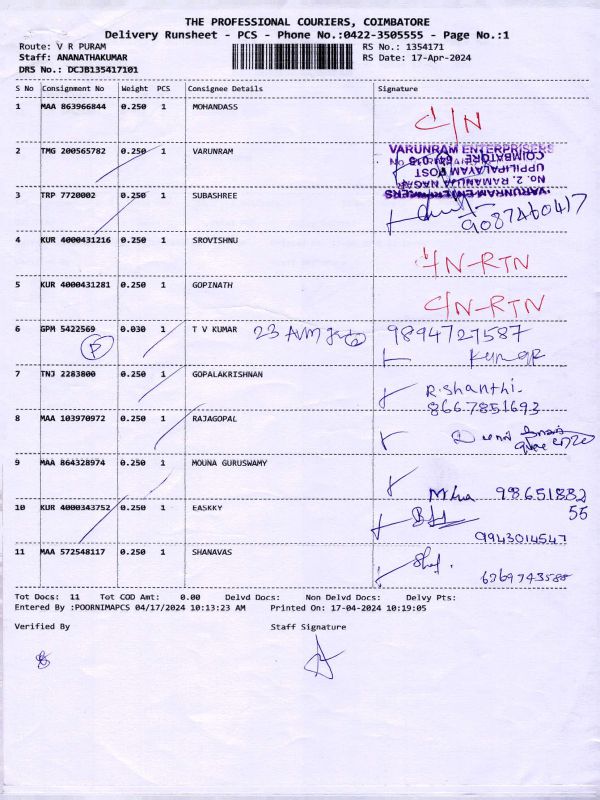 THE PROFESSIONAL COURIERS, COIMBATORE
Delivery Runsheet - PCS - Phone No.:0422-3505555 - Page No.:1
Route: V R PURAM RS No.: 1354171
Staff: ANANATHAKUMAR RS Date: 17-Apr-2024
DRS No.: DCJB135417101
S No Consignment No Weight PCS Consignee Details Signature
1 MAA 863966844 0.250 1 MOHANDASS C/N
2 TMG 200565782 0.250 1 VARUNRAM
VARUNRAM ENTERPRISES
COIMBATORE
UPPILIPALAYAM POST
NO. 2, RAMANUJA NAGAR
VARUNRAM ENTERPRISERS
3 TRP 7720002 0.250 1 SUBASHREE 9087460417
4 KUR 4000431216 0.250 1 SROVISHNU C/N-RTN
5 KUR 4000431281 0.250 1 GOPINATH C/N-RTN
6 GPM 5422569 0.030 1 T V KUMAR 23 9894727587
P
7 TNJ 2283800 0.250 1 GOPALAKRISHNAN R.Shanthi.
8667851693
8 MAA 103970972 0.250 1 RAJAGOPAL
9 MAA 864328974 0.250 1 MOUNA GURUSWAMY
998651882
55
10 KUR 4000343752 0.250 1 EASKKY
9943014547
11 MAA 572548117 0.250 1 SHANAVAS
Tot Docs: 11 Tot COD Amt: 0.00 Delvd Docs: Non Delvd Docs: Delvy Pts:
Entered By :POORNIMAPCS 04/17/2024 10:13:23 AM Printed On: 17-04-2024 10:19:05
Verified By Staff Signature